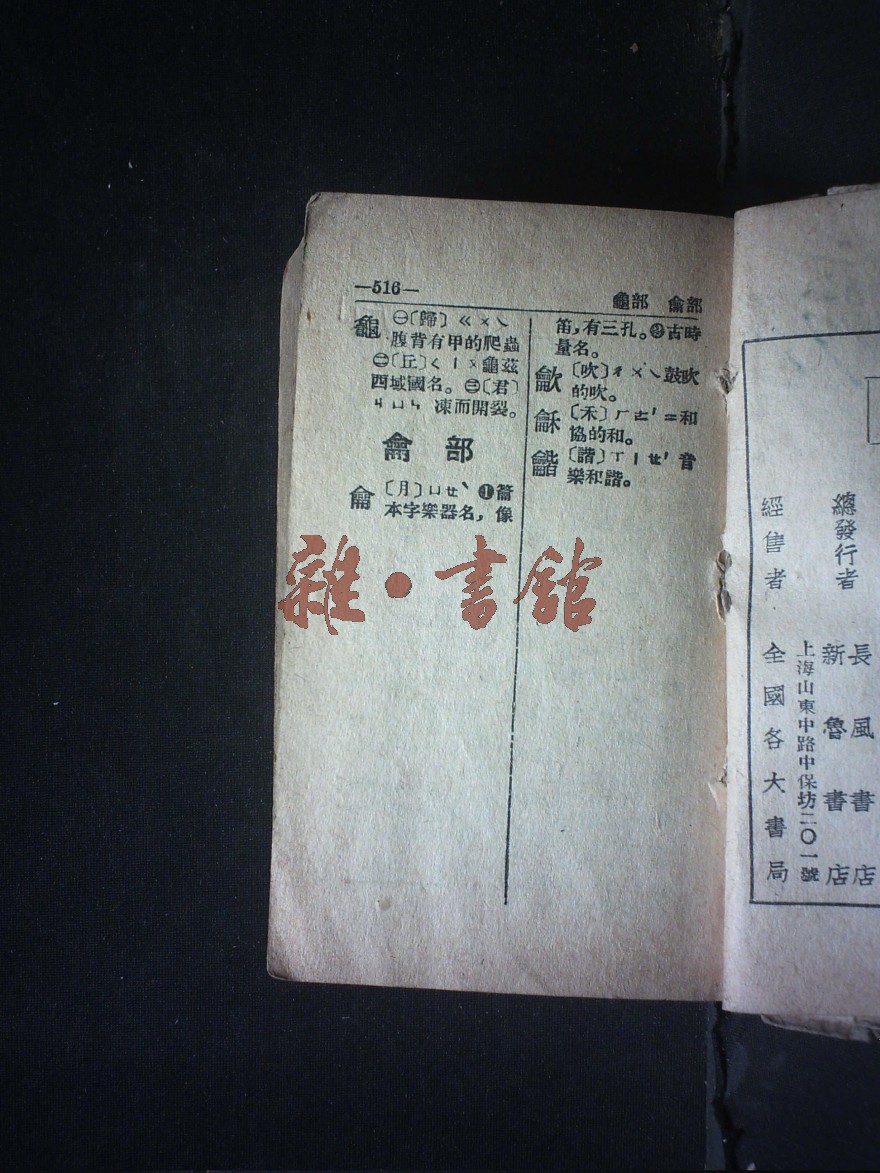 —516—
龜部 龠部
龜 ㊀〔歸〕ㄍㄨㄟ
腹背有甲的爬蟲
㊁〔丘〕ㄑㄧㄡ龜茲
西域國名。㊂〔君〕
ㄐㄩㄣ 凍而開裂。
龠部
龠 〔月〕ㄩㄝˋ ❶籥
本字樂器名，像
笛，有三孔。❷古時
量名。
龡 〔吹〕ㄔㄨㄟ鼓吹
的吹。
龢 〔禾〕ㄏㄜˊ=和
協的和。
龤 〔諧〕ㄒㄧㄝˊ音
樂和諧。
雜·書館
總發行者
長風書店
新魯書店
上海山東中路中保坊二〇一號
經售者
全國各大書局